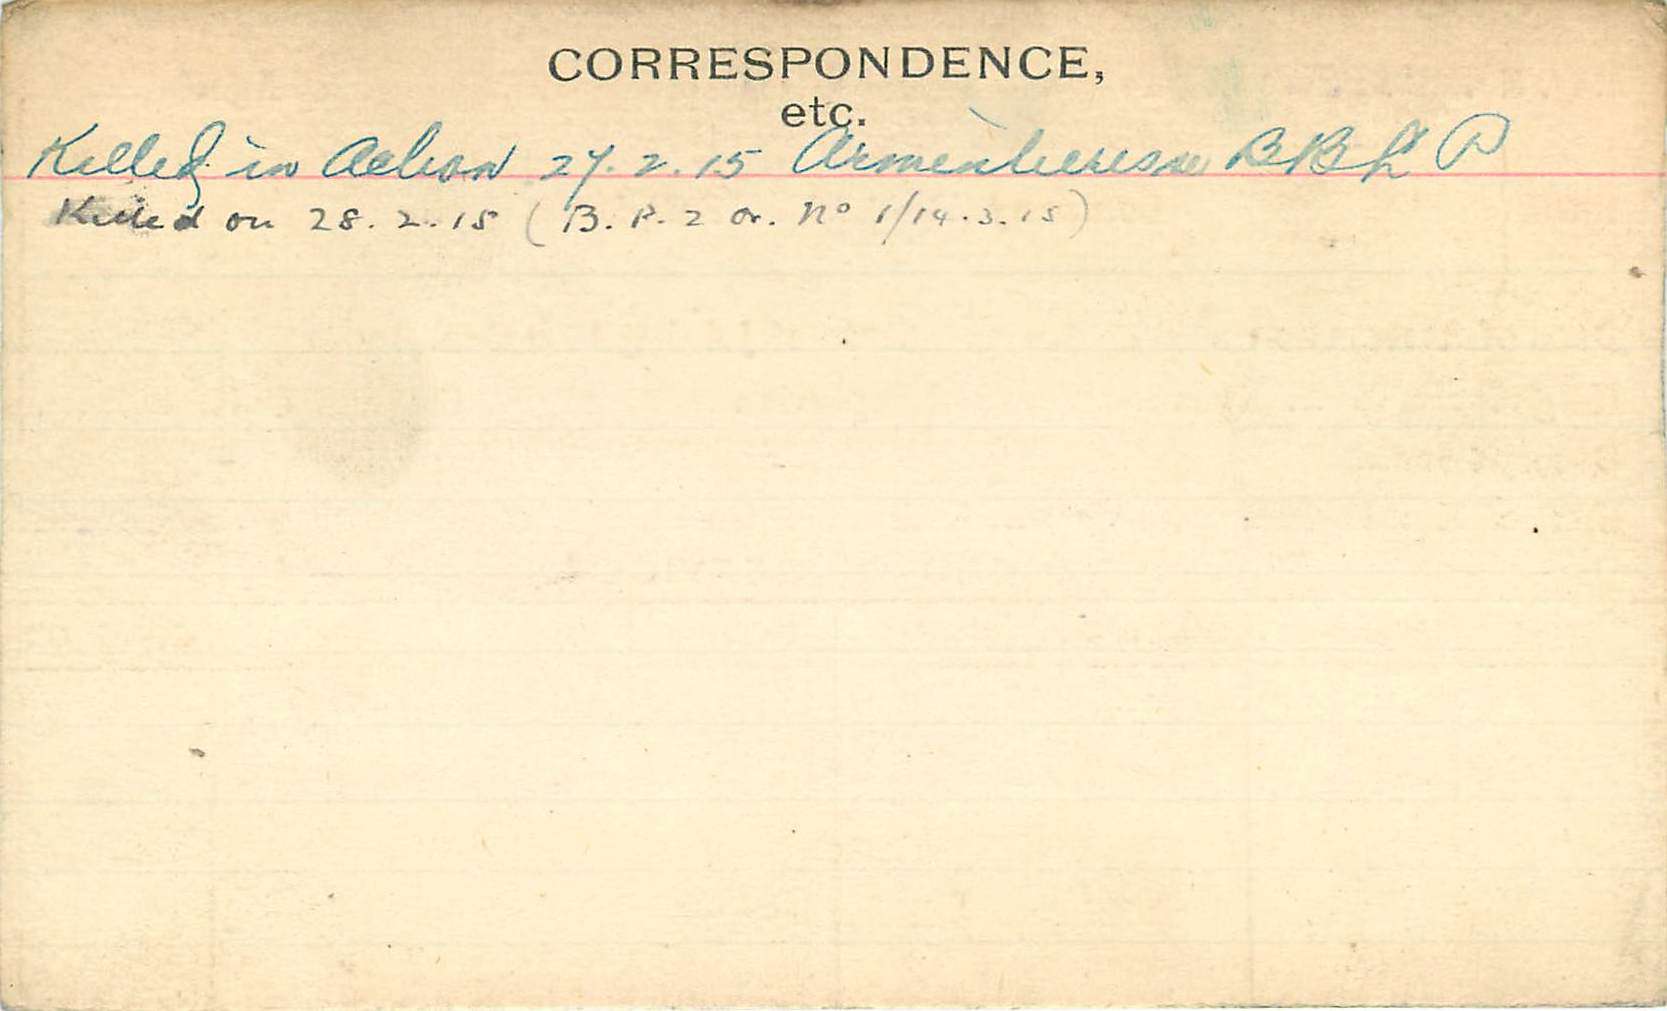 CORRESPONDENCE,
etc.
Killed in Action 27.2.15 Armentieres
Killed on 28.2.15 (B. P. 2 Or. No 1/14.3.15)